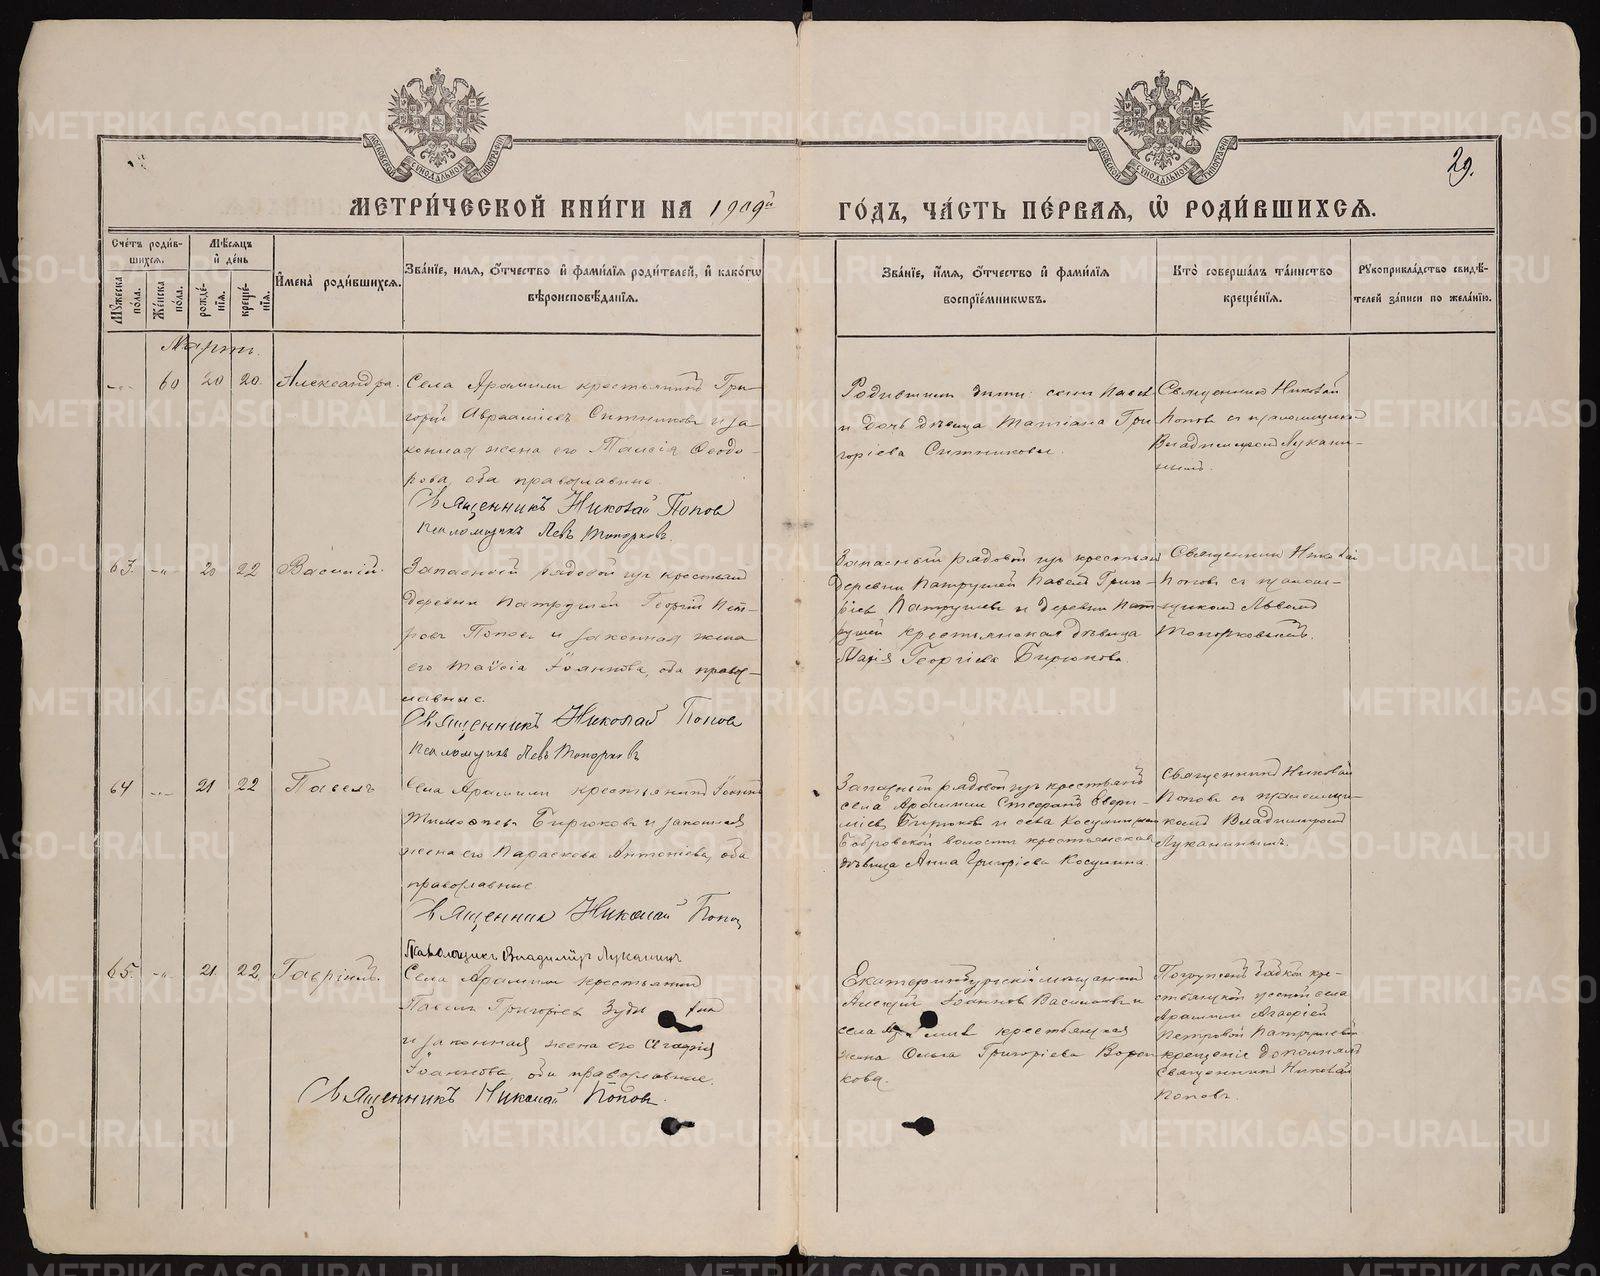 29.
МЕТРИ́ЧЕСКОЙ КНИ́ГИ НА 1909й ГО́ДЪ, ЧА́СТЬ ПЕ́РВАЯ, Ѡ РОДИ́ВШИХСЯ.
Сче́тъ роди́в-
шихся.
Мѣ́сяцъ
и҆ де́нь
Мꙋ́жеска по́ла.
Же́нска по́ла.
рожде́-
нїя.
креще́-
нїя.
И҆мена̀ роди́вшихся.
Зва́нїе, и҆мя, ѻ҆́тчество и҆ фами́лїя роди́телей, и҆ како́гѡ
вѣроисповѣ́данїя.
Зва́нїе, и҆́мя, ѻ҆́тчество и҆ фами́лїя
воспрїе́мникѡвъ.
Кто̀ соверша́лъ та́инство
креще́нїя.
Рꙋкоприкла́дство свидѣ́-
телей за́писи по жела́нїю.
Мартъ.
60 20 20. Александра.
Села Арамили крестьянинъ Гри-
горій Авраамiевъ Ситниковъ и за-
конная жена его Таисія Ѳеодо-
рова, оба православные.
Священникъ Николай Попов
Псаломщикъ Левъ Топорковъ.
Родившіи дити: сынъ Павел
и дочь дѣвица Татіана Гри-
горіева Ситниковы.
Священник Николай
Попов с псаломщиком
Владимиром Лукани-
нымъ.
63. -"- 20 22 Василій.
Запасный рядовой изъ крестьян
деревни Патрушей Георгій Пет-
ровъ Поповъ и законная жена
его Таисіа Іоаннова, оба правос-
лавные.
Священникъ Николай Попов
Псаломщикъ Левъ Топорковъ
Запасный рядовой изъ крестьян
деревни Патрушей Павел Григо-
ріев Патрушевъ и деревни Пат-
рушей крестьянская дѣвица
Марія Георгіева Бирюкова.
Священник Николай
Поповъ с псалом-
щиком Львомъ
Топорковымъ.
64 -"- 21 22 Павелъ
Села Арамили крестьянинъ Іоаннъ
Тимоѳеевъ Бирюковъ и законная
жена его Параскева Антоніева, оба
православные
Священник Николай Попов
Псаломщикъ Владимiръ Луканинъ
Запасный рядовой изъ крестьянъ
села Арамили Стефанъ
Бирюков и села
Бобровской волости крестьянская
дѣвица Анна Григоріева Косулина
Священникъ Николай
Поповъ с псаломщи-
комъ Владимиромъ
Луканинымъ.
65. -"- 21 22 Гавріилъ.
Села Арамили крестьянинъ
Павелъ Григоріевъ
и законная жена его Агафія
Іоаннова, оба православные.
Священникъ Николай Поповъ.
Екатеринбургскій мещанинъ
Алексій Іоаннов Васильевъ и
села крестьянская
жена Ольга Григоріева
кова.
Погруженъ бабкой кре-
стьянской женой села
Арамили Агафіей
Петровой Патрушевой
крещеніе дополнялъ
Священникъ Николай
Поповъ.
METRIKI.GASO-URAL.RU